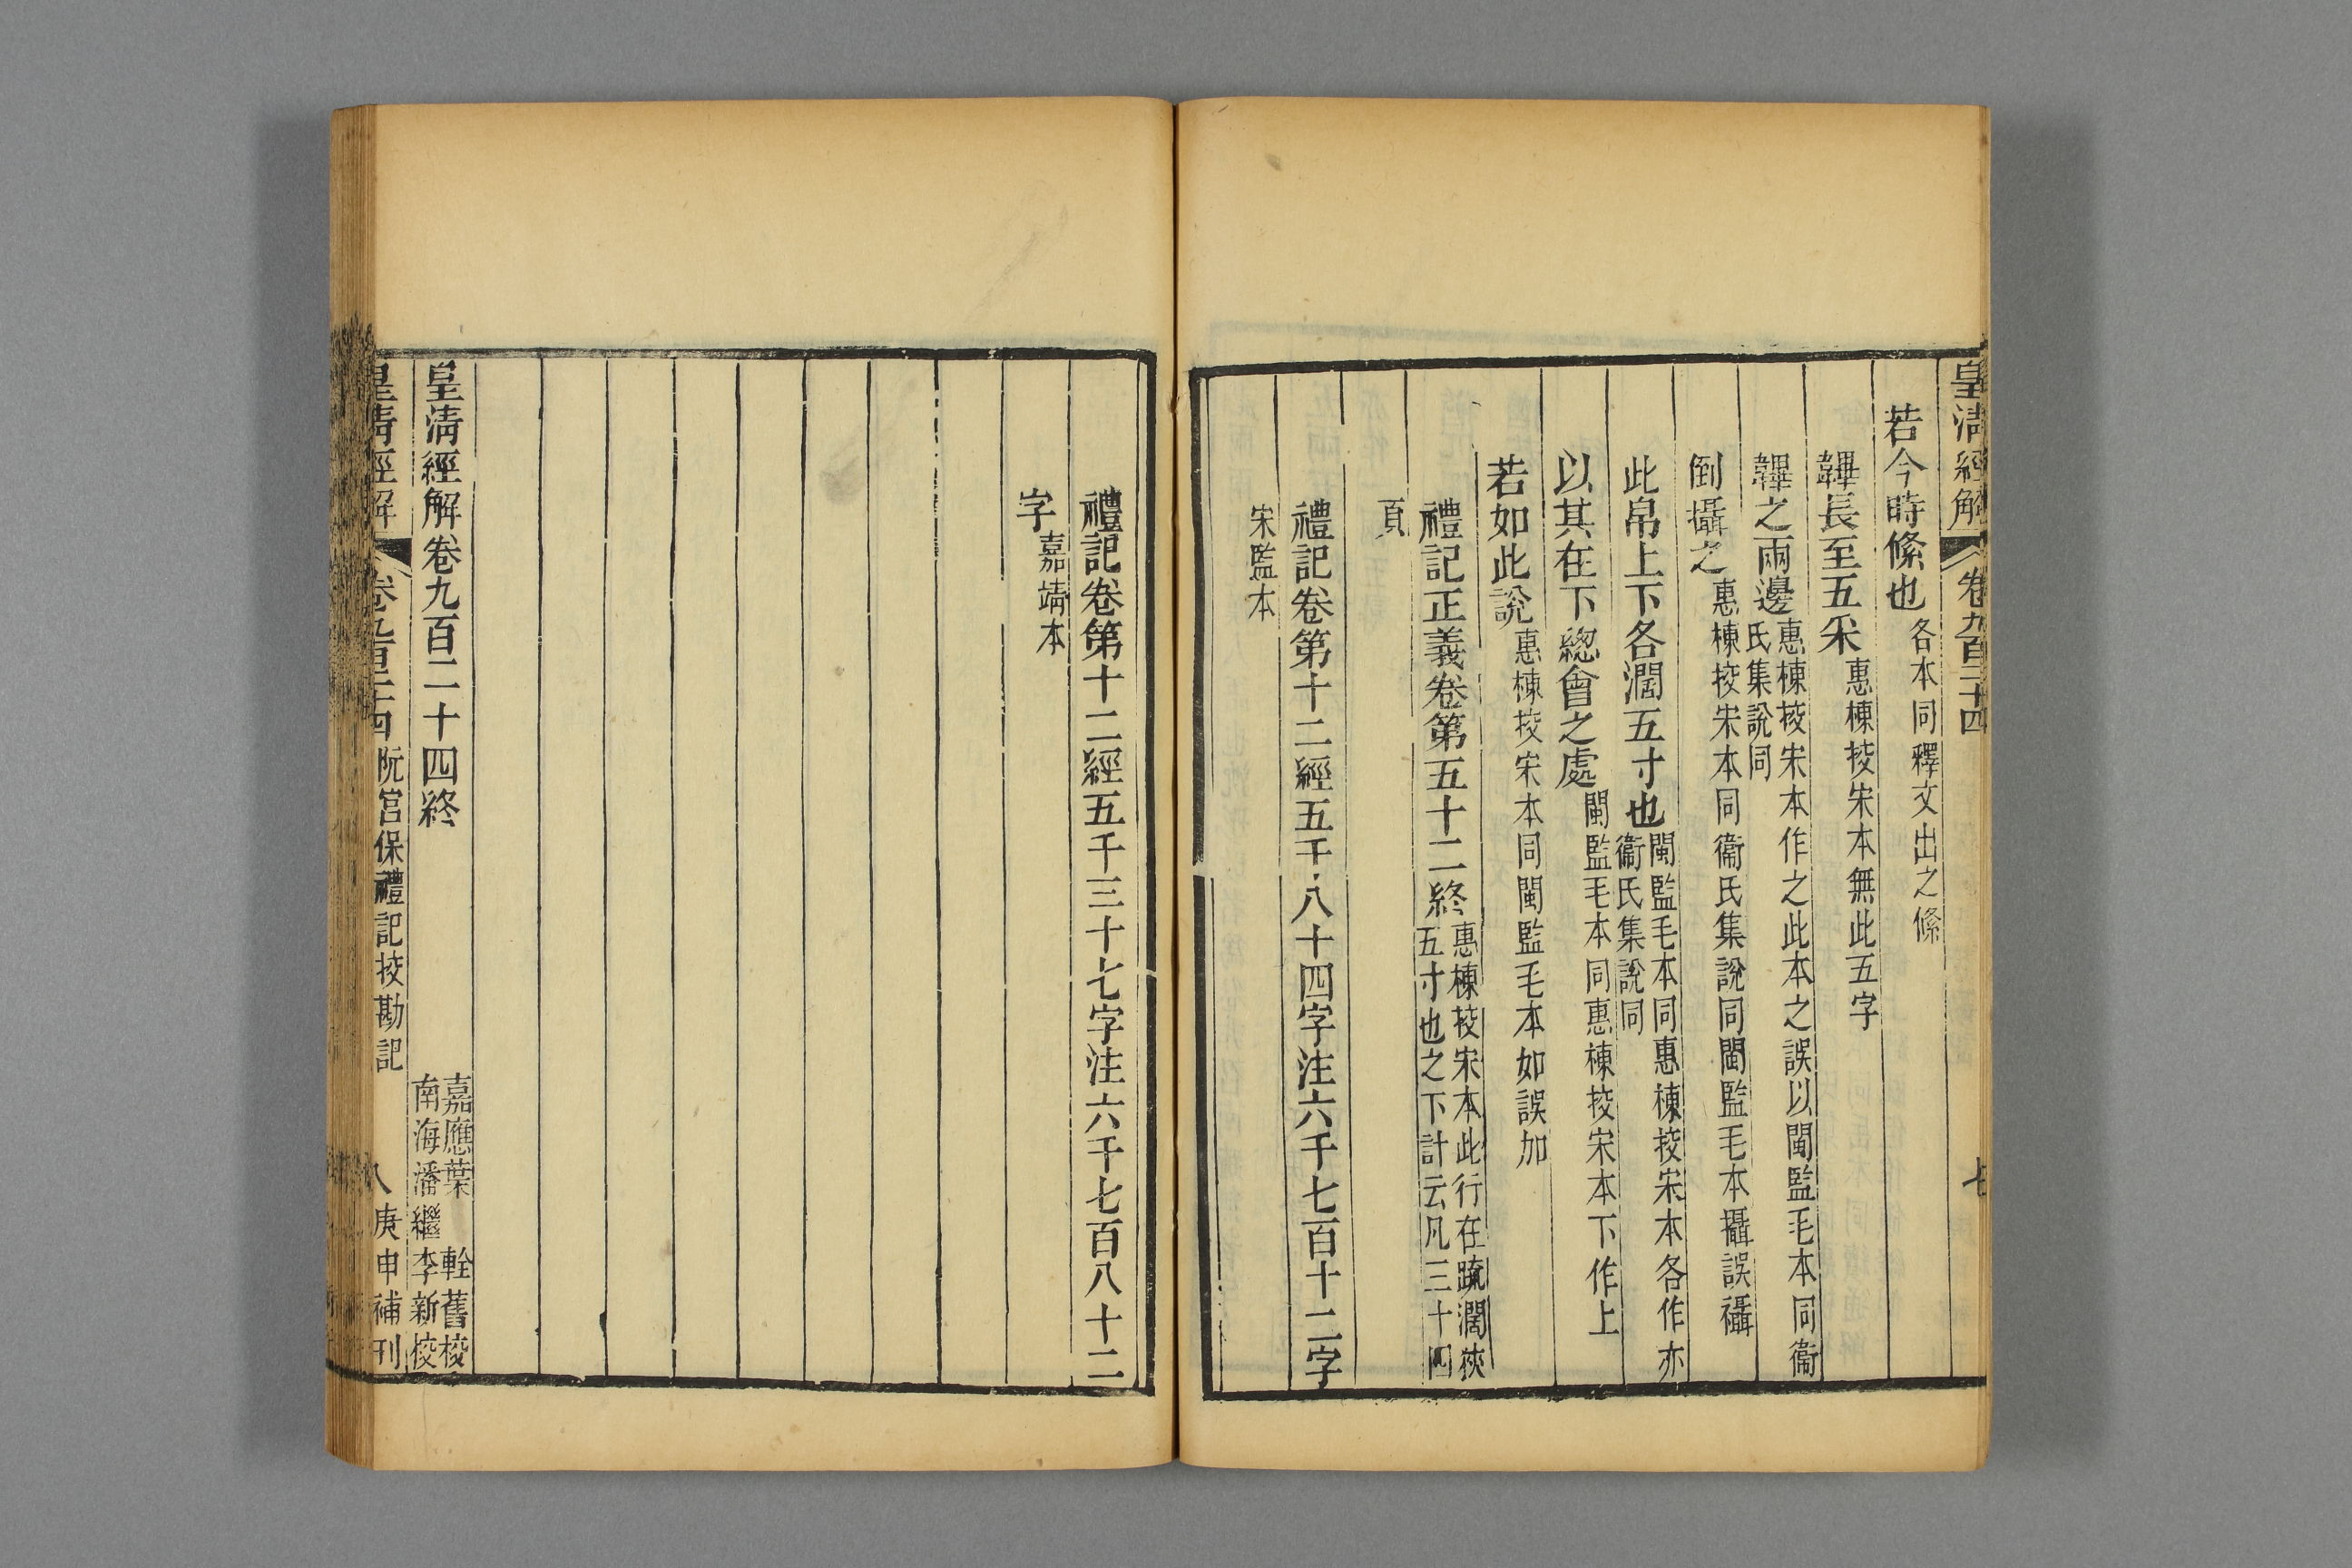 皇清經解 卷九百二十四 七
若今時絛也各本同釋文出之絛
韠長至五采惠棟挍宋本無此五字
韠之兩邊惠棟挍宋本作之此本之誤以閩監毛本同衞氏集說同
倒攝之惠棟挍宋本同衞氏集說同閩監毛本攝誤襵
此帛上下各濶五寸也閩監毛本同惠棟挍宋本各作亦衞氏集說同
以其在下總會之處閩監毛本同惠棟挍宋本下作上
若如此說惠棟挍宋本同閩監毛本如誤加
禮記正義卷第五十二終惠棟挍宋本此行在䟽濶狹五寸也之下計云凡三十四
頁
禮記卷第十二經五千八十四字注六千七百十二字
宋監本
禮記卷第十二經五千三十七字注六千七百八十二
字嘉靖本
皇清經解卷九百二十四終 嘉應葉 輇舊挍 南海潘繼李新挍
皇清經解 卷九百二十四 阮宮保禮記挍勘記 八 庚申補刊